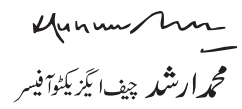 محمد ارشد چیف ایگزیکٹو آفیسر